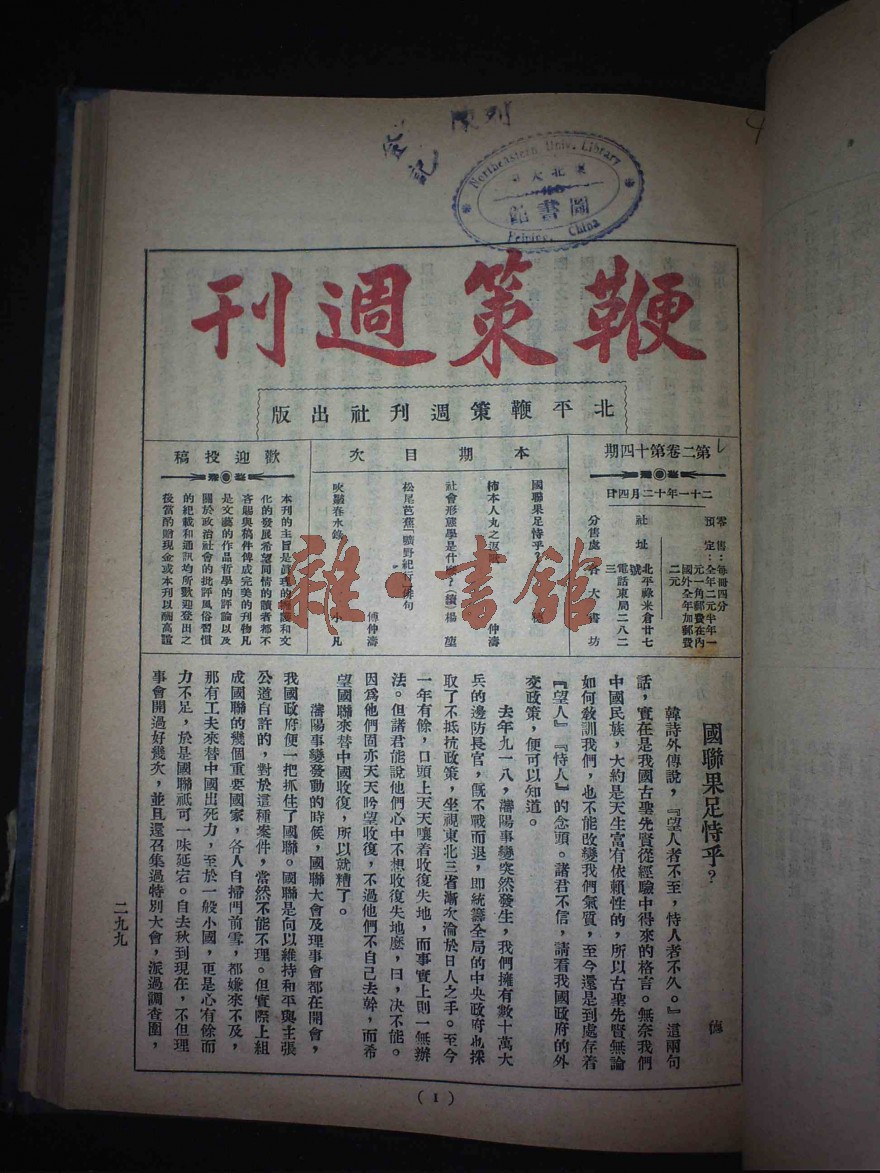 陳列
Northeastern Univ. Library
東北大
圖書館
Peiping, China
鞭策週刊
北平鞭策週刊社出版
第二卷第十四期
二十一年十二月四日
零售:每冊四分
預定:全年二元半年一
元一角郵費在內
國外全年加郵費
二元
社址 北平祿米倉廿七
號 電話東局二八二
三
分售處 各大書坊
本期目次
國聯果足恃乎?
柿本人丸之 仲濤
社會形態學是什麼?(續) 楊堃
松尾芭蕉「曠野紀行」俳句
傅仲濤
吹皺春水錄 小凡
歡迎投稿
本刊的主旨是眞理的 護和文
化的發展希望同情的讀者都不
吝賜與稿件俾成完美的刊物凡
是文藝的作品哲學的評論以及
關於政治社會的批評風俗習慣
的紀載和通訊均所歡迎登出之
後當酌贈現金或本刊以酬高誼
國聯果足恃乎?
德
韓詩外傳說,『望人者不至,恃人者不久。』這兩句
話,實在是我國古聖先賢從經驗中得來的格言。無奈我們
中國民族,大約是天生富有依賴性的,所以古聖先賢無論
如何敎訓我們,也不能改變我們氣質,至今還是到處存着
『望人』『恃人』的念頭。諸君不信,請看我國政府的外
交政策,便可以知道。
去年九一八,瀋陽事變突然發生,我們擁有數十萬大
兵的邊防長官,旣不戰而退,即統籌全局的中央政府也採
取了不抵抗政策,坐視東北三省漸次淪於日人之手。至今
一年有餘,口頭上天天嚷着收復失地,而事實上則一無辦
法。但諸君能說他們心中不想收復失地麼,曰,决不能。
因爲他們固亦天天吟望收復,不過他們不自己去幹,而希
望國聯來替中國收復,所以就糟了。
瀋陽事變發動的時候,國聯大會及理事會都在開會,
我國政府便一把抓住了國聯。國聯是向以維持和平與主張
公道自許的,對於這種案件,當然不能不理。但實際上組
成國聯的幾個重要國家,各人自掃門前雪,都嫌來不及,
那有工夫來替中國出死力,至於一般小國,更是心有餘而
力不足,於是國聯祇可一味延宕。自去秋到現在,不但理
事會開過好幾次,並且還召集過特別大會,派過調查團,
二九九
(1)
雜·書館